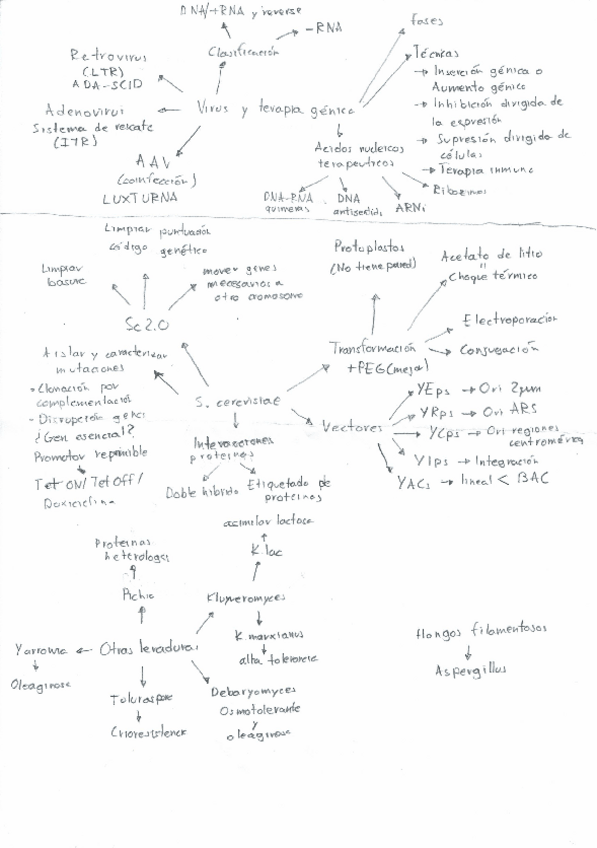 DNA/+RNA y reverse
-RNA
fases
Clasificación
Retrovirus
(LTR)
ADA-SCID
Técnicas
→ Inserción génica o
Aumento génico
→ Inhibición dirigida de
la expresión
→ Supresión dirigida de
células
→ Terapia inmune
→ Ribozimas
Adenovirus
Sistema de rescate
(ITR)
Virus y terapia génica
AAV
(coinfección)
LUXTURNA
Acidos nucleicos
terapeuticos
DNA-RNA
quimeras
DNA
antisentido
ARNi
Limpiar puntuación
código genético
Limpiar
basura
mover genes
necesarios a
otro cromosoma
Sc 2.0
Protoplastos
(No tiene pared)
Acetato de litio
"
Choque térmico
Electroporación
Conjugación
Transformación
+PEG (mejor)
Aislar y caracterizar
mutaciones
- Clonación por
complementación
- Disrupción genes
¿Gen esencial?
Promotor reprimible
Tet ON/Tet OFF/
Doxiciclina
S. cerevisiae
Interacciones
proteinas
Doble hibrido
Etiquetado de
proteinas
Vectores
YEps → Ori 2μm
YRps → Ori ARS
YCps → Ori regiones
centromérica
YIps → Integración
YACs → lineal < BAC
asimilar lactosa
K lac
Proteinas
heterologas
Pichia
Kluyveromyces
K. marxianus
alta tolerancia
Yarrowia ← Otras levaduras
Oleaginosa
Debaryomyces
Osmotolerante
y
oleaginosa
Crioresistente
Hongos filamentosos
Aspergillus